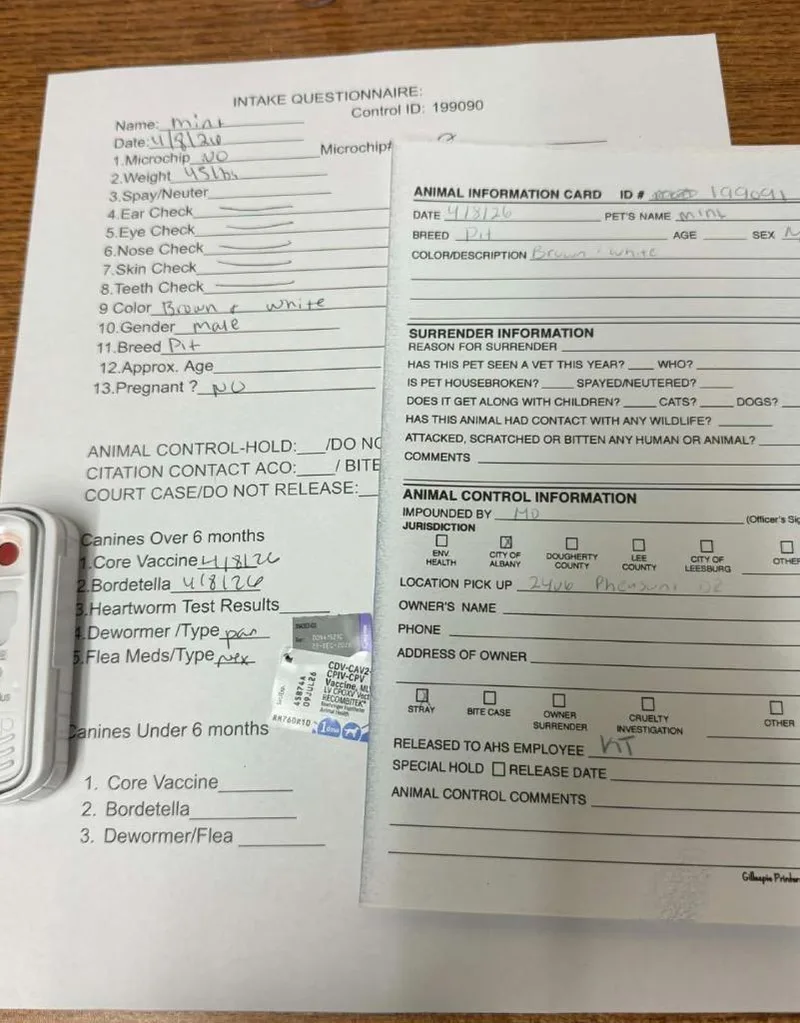 INTAKE QUESTIONNAIRE:
Control ID: 199090
Name: Mint
Date: 4/8/26
1.Microchip NO Microchip#
2.Weight 45lbs
3.Spay/Neuter
4.Ear Check
5.Eye Check
6.Nose Check
7.Skin Check
8.Teeth Check
9 Color Brown & white
10.Gender male
11.Breed Pit
12.Approx. Age
13.Pregnant ? NO
ANIMAL CONTROL-HOLD: /DO NO
CITATION CONTACT ACO: / BITE
COURT CASE/DO NOT RELEASE:
Canines Over 6 months
1.Core Vaccine 4/8/26
2.Bordetella 4/8/26
3.Heartworm Test Results
4.Dewormer /Type pan
5.Flea Meds/Type nex
CDV-CAV2-
CPIV-CPV
Vaccine, ML
LV CPOXV Vect
RECOMBITEK
45874A
09JUL26
Canines Under 6 months
1. Core Vaccine
2. Bordetella
3. Dewormer/Flea
ANIMAL INFORMATION CARD ID # 199091
DATE 4/8/26 PET'S NAME Mint
BREED Pit AGE SEX M
COLOR/DESCRIPTION Brown white
SURRENDER INFORMATION
REASON FOR SURRENDER
HAS THIS PET SEEN A VET THIS YEAR? WHO?
IS PET HOUSEBROKEN? SPAYED/NEUTERED?
DOES IT GET ALONG WITH CHILDREN? CATS? DOGS?
HAS THIS ANIMAL HAD CONTACT WITH ANY WILDLIFE?
ATTACKED, SCRATCHED OR BITTEN ANY HUMAN OR ANIMAL?
COMMENTS
ANIMAL CONTROL INFORMATION
IMPOUNDED BY MO (Officer's Sig
JURISDICTION
ENV. HEALTH CITY OF ALBANY DOUGHERTY COUNTY LEE COUNTY CITY OF LEESBURG OTHER
LOCATION PICK UP 2406 DR
OWNER'S NAME
PHONE
ADDRESS OF OWNER
STRAY BITE CASE OWNER SURRENDER CRUELTY INVESTIGATION OTHER
RELEASED TO AHS EMPLOYEE KT
SPECIAL HOLD RELEASE DATE
ANIMAL CONTROL COMMENTS
Gillespie Printer